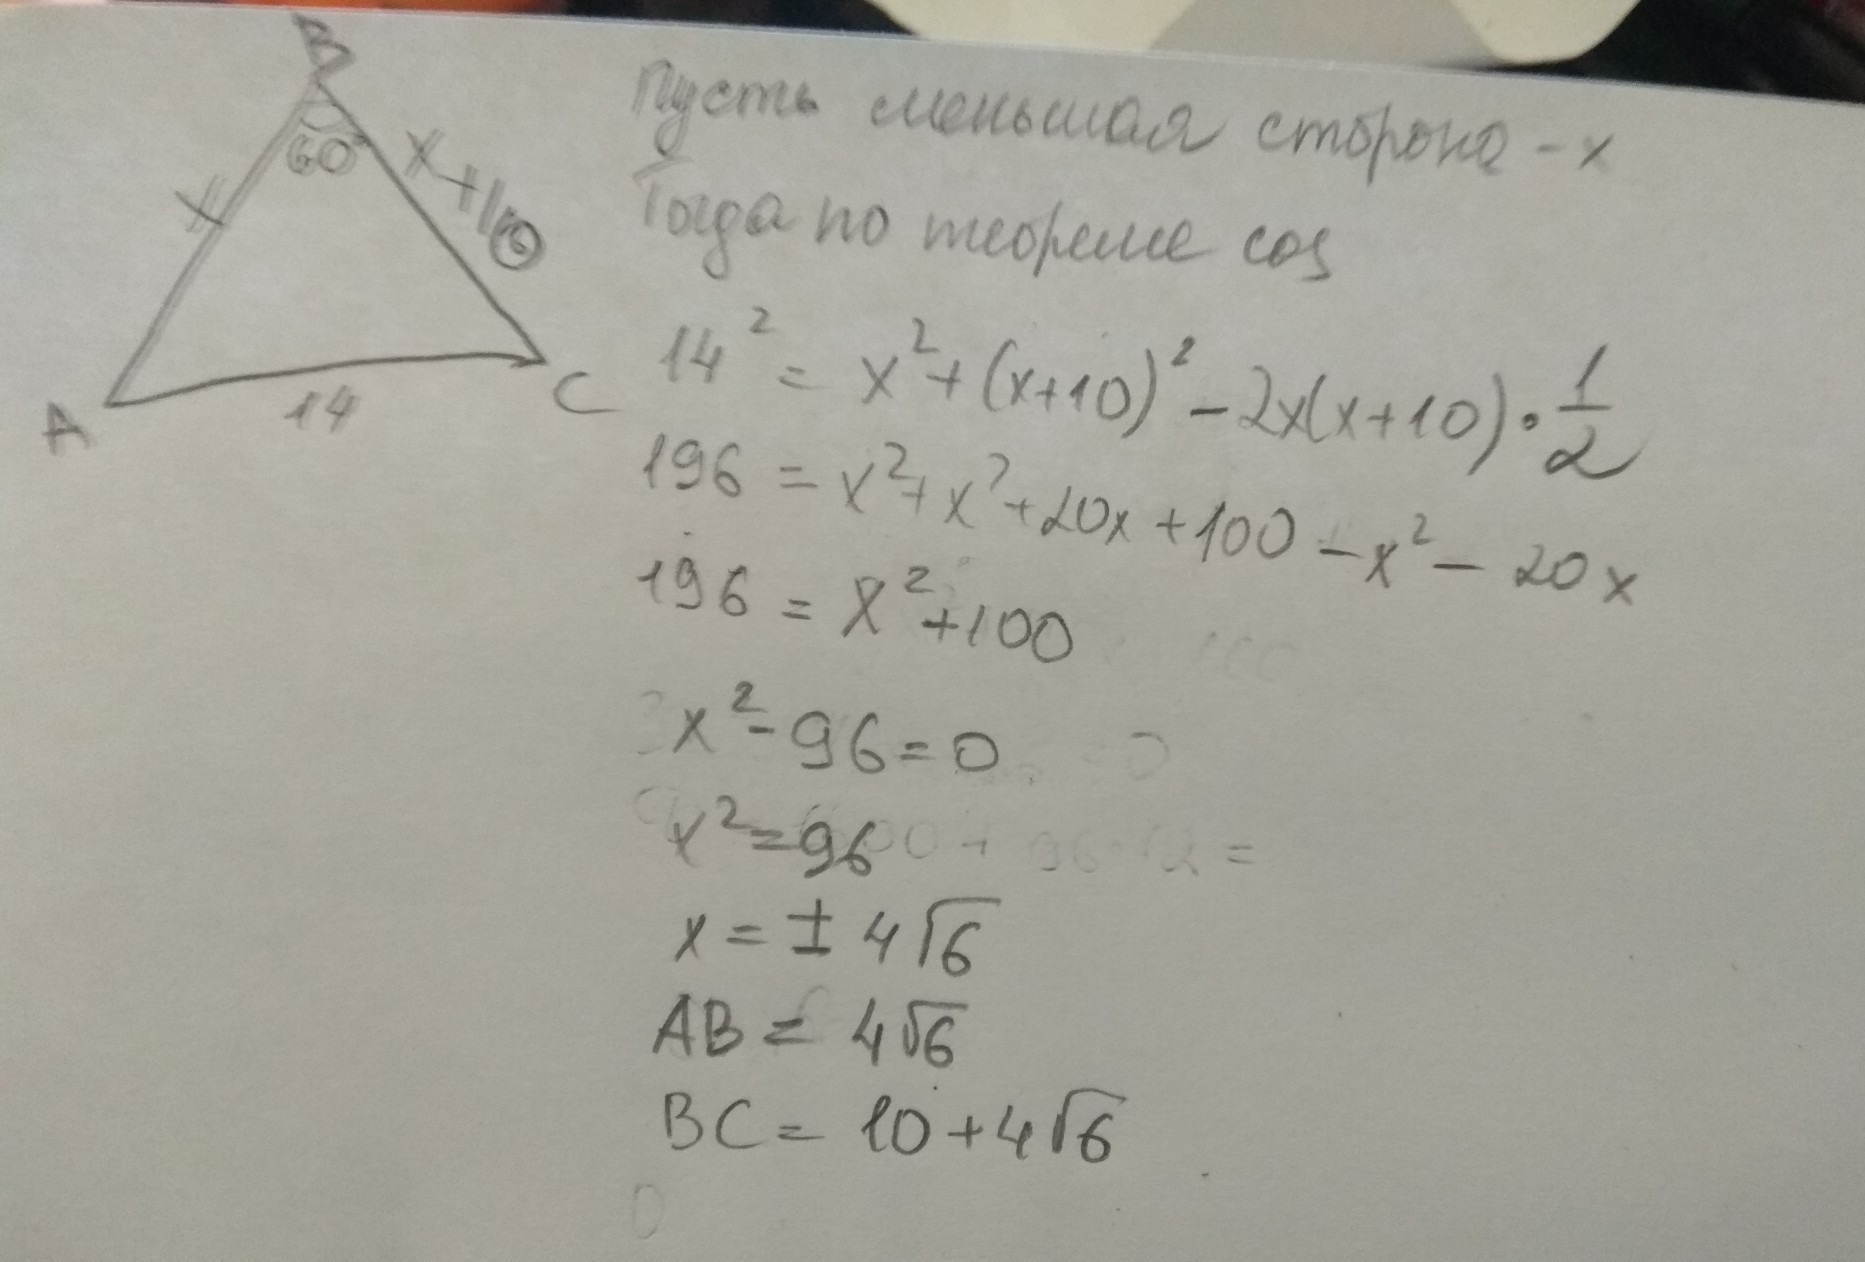 B
60°
x
x+10
A
14
C
Пусть меньшая сторона - x
Тогда по теореме cos
14² = x² + (x+10)² - 2x(x+10) · 1/2
196 = x² + x² + 20x + 100 - x² - 20x
196 = x² + 100
x² - 96 = 0
x² = 96
x = ± 4√6
AB = 4√6
BC = 10 + 4√6